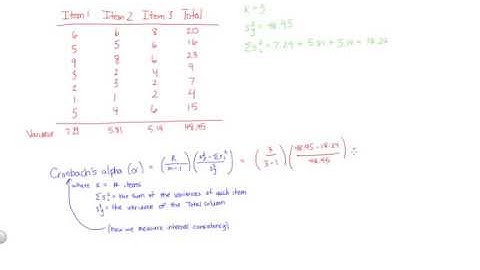 Item 1 Item 2 Item 3 Total
6 6 8 20
5 5 6 16
9 8 6 23
3 2 4 9
2 3 2 7
1 1 2 4
5 4 6 15
Variance 7.29 5.81 5.14 48.95
K = 3
Cronbach's alpha (α) = (K/K-1)(s²y - Σs²i / s²y) = (3/3-1)
where K = # items
Σs²i = the sum of the variances of each item
s²y = the variance of the Total column
(how we measure internal consistency)